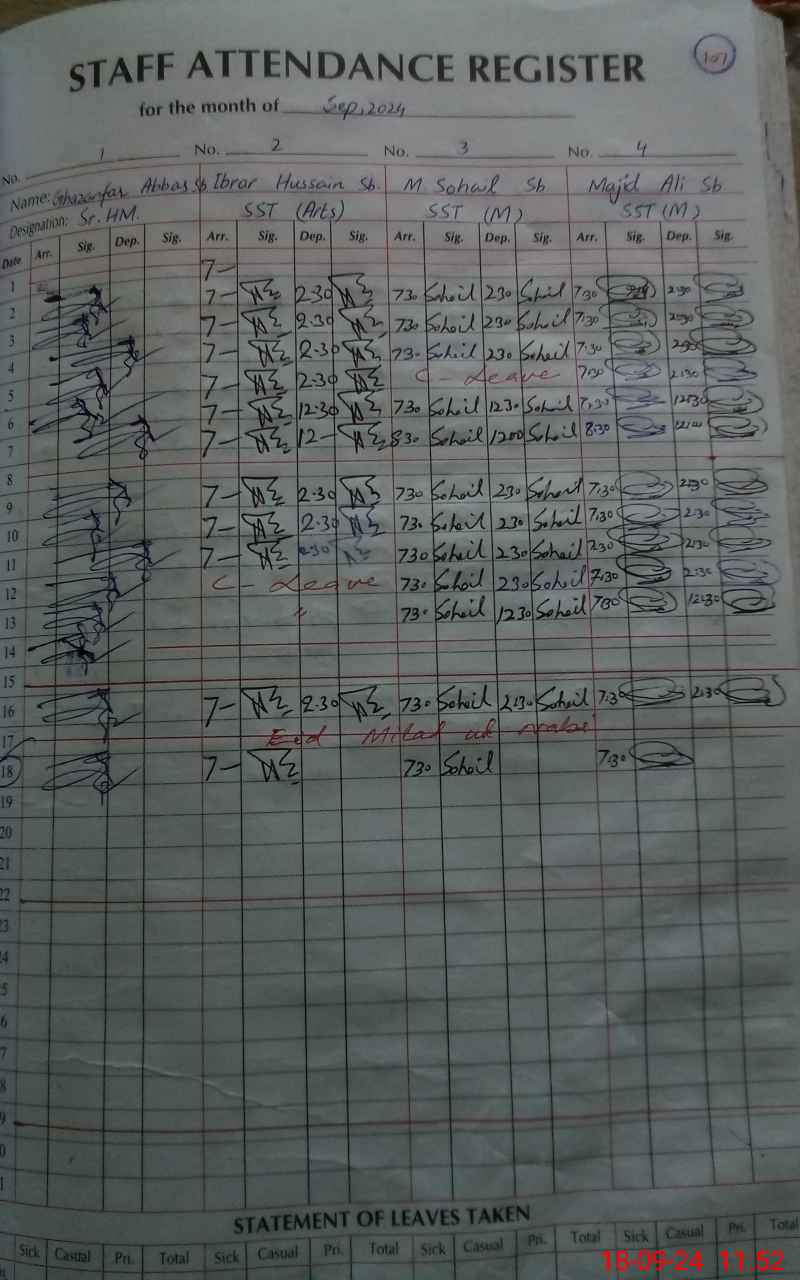 107
STAFF ATTENDANCE REGISTER
for the month of Sep, 2024
No. 1 No. 2 No. 3 No. 4
Name: Ghazanfar Abbas Sb Ibrar Hussain Sb. M. Sohail Sb Majid Ali Sb
Designation: Sr. HM. SST (Arts) SST (M) SST (M)
Date Arr. Sig. Dep. Sig. Arr. Sig. Dep. Sig. Arr. Sig. Dep. Sig. Arr. Sig. Dep. Sig.
7-
1 7- 2.30 730 Sohail 230 Sohail 7:30 2:30
2 7- 2.30 730 Sohail 230 Sohail 7:30 2:30
3 7- 2.30 730 Sohail 230 Sohail 7:30 2:30
4 7- 2.30 C - Leave 7:30 2:30
5 7- 12.30 730 Sohail 1230 Sohail 7:30 12:30
6 7- 12- 830 Sohail 1200 Sohail 8:30
7
8 7- 2.30 730 Sohail 230 Sohail 7:30 2:30
9 7- 2.30 730 Sohail 230 Sohail 7:30 2:30
10 7- 2:30 730 Sohail 230 Sohail 7:30 2:30
11 C - Leave 730 Sohail 230 Sohail 7:30 2:30
12 " 730 Sohail 1230 Sohail 7:30 12:30
13
14
15
16 7- 2.30 730 Sohail 230 Sohail 7:30 2:30
17 Eid Milad ul Nabi
18 7- 730 Sohail 7:30
19
20
21
22
23
24
5
6
7
8
9
0
1
STATEMENT OF LEAVES TAKEN
Sick Casual Pri. Total Sick Casual Pri. Total Sick Casual Pri. Total Sick Casual Pri. Total
18-09-24 11:52